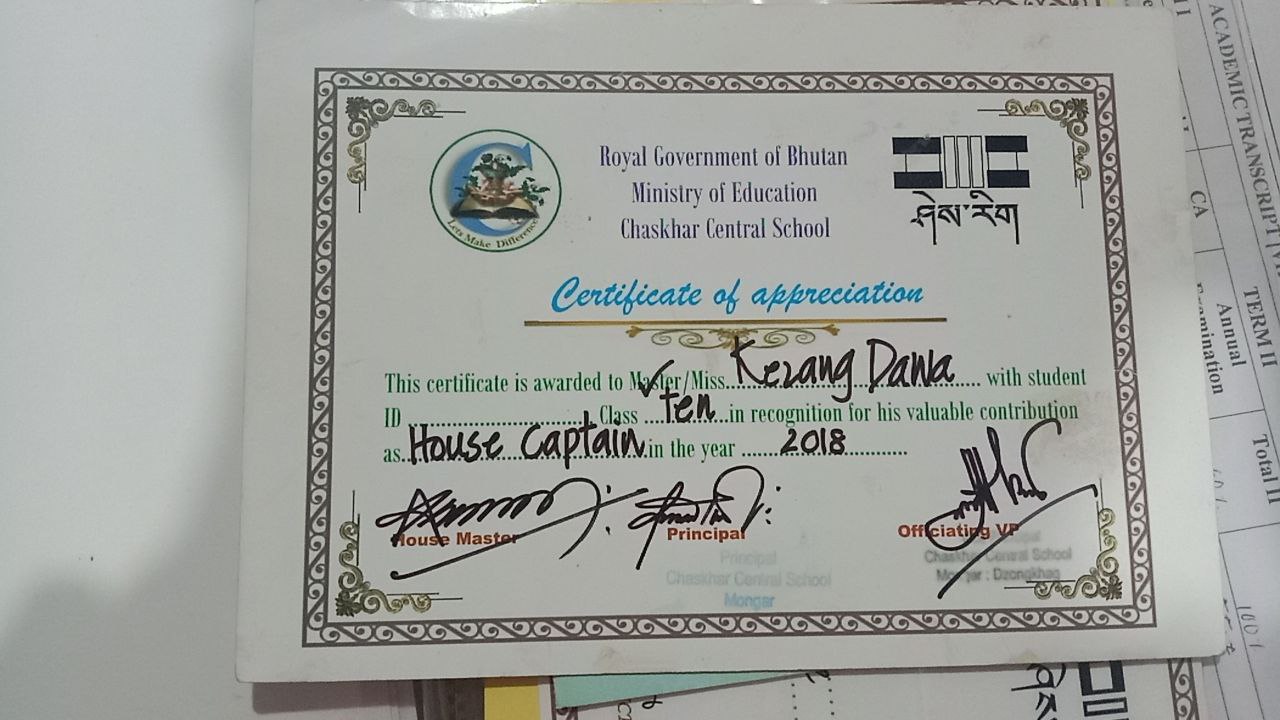 Royal Government of Bhutan
Ministry of Education
Chaskhar Central School
Lets Make Difference
ཤེས་རིག
Certificate of appreciation
This certificate is awarded to Master/Miss....Kezang Dawa.... with student
ID ........................ Class ....ten...in recognition for his valuable contribution
as..House Captain.in the year ......2018............
House Master
Principal
Officiating VP
Principal
Chaskhar Central School
Mongar
Chaskhar Central School
Mongar : Dzongkhag
ACADEMIC TRANSCRIPT
TERM II
CA
Annual
Examination
Total II